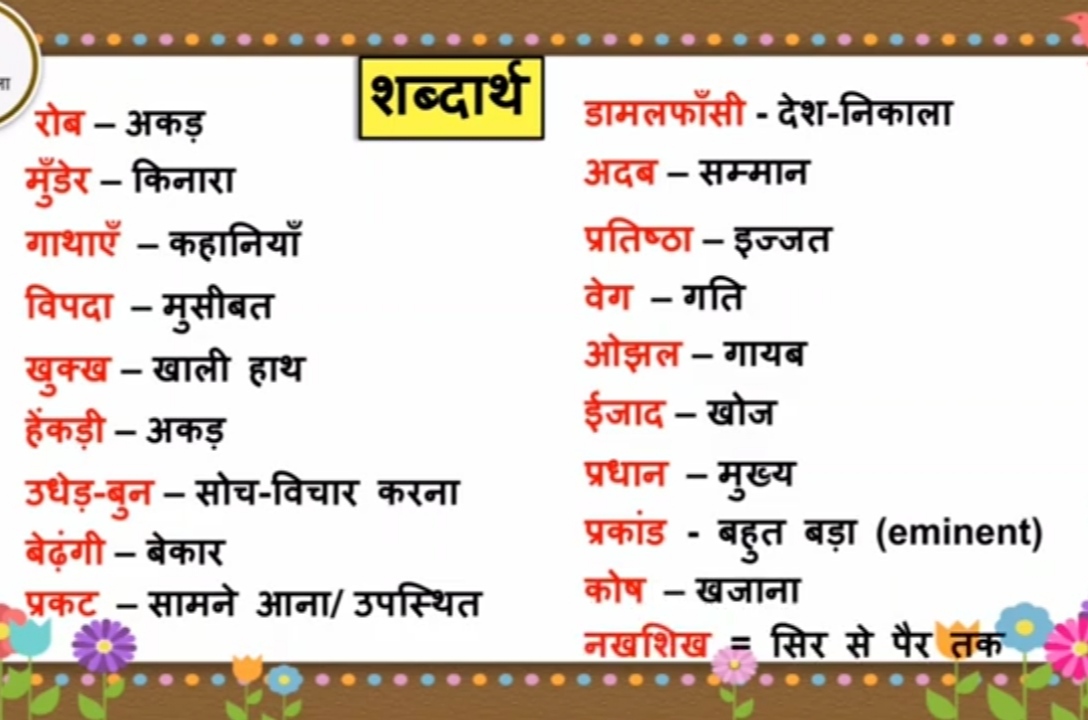 शब्दार्थ
रोब – अकड़
मुँडेर – किनारा
गाथाएँ – कहानियाँ
विपदा – मुसीबत
खुक्ख – खाली हाथ
हेंकड़ी – अकड़
उधेड़-बुन – सोच-विचार करना
बेढ़ंगी – बेकार
प्रकट – सामने आना/ उपस्थित
डामलफाँसी - देश-निकाला
अदब – सम्मान
प्रतिष्ठा – इज्जत
वेग – गति
ओझल – गायब
ईजाद – खोज
प्रधान – मुख्य
प्रकांड - बहुत बड़ा (eminent)
कोष – खजाना
नखशिख = सिर से पैर तक